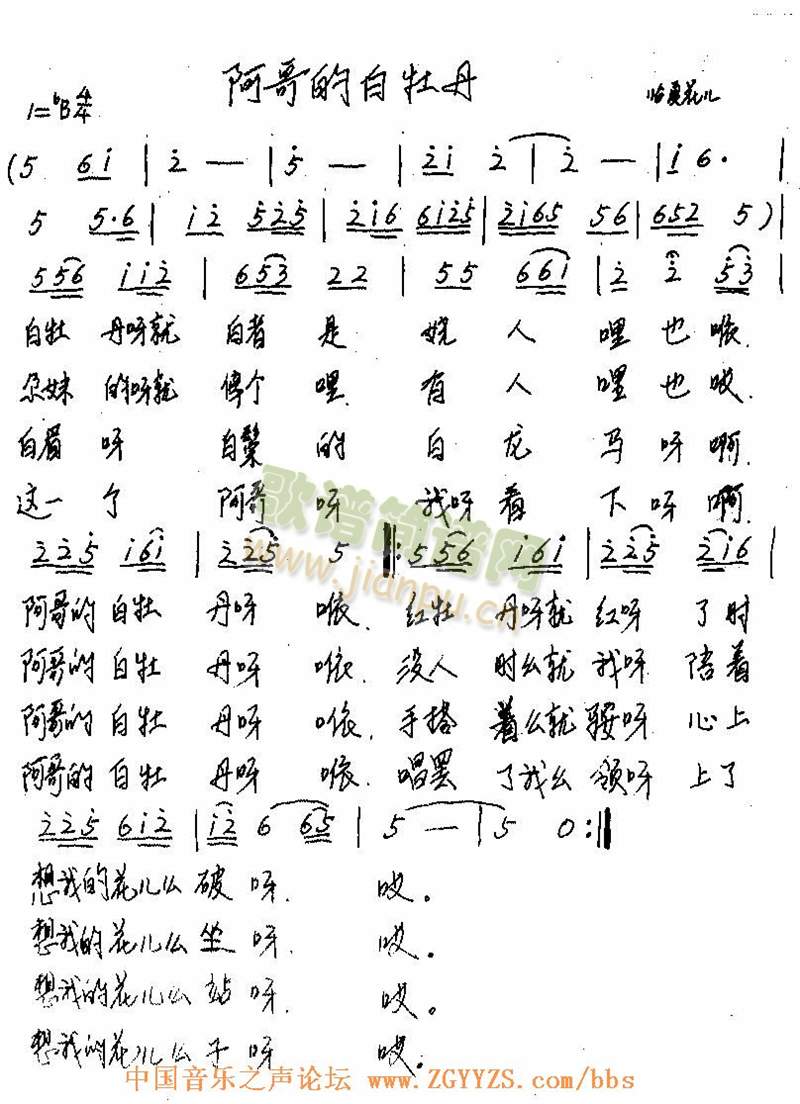 阿哥的白牡丹
1=♭B 4/4
临夏花儿
(5 6i | 2 — | 5 — | 2i 2 | 2 — | i 6· |
5 5·6 | i2 525 | 2i6 6i25 | 2i65 56 | 652 5) |
556 ii2 | 653 22 | 55 66i | 2 2 53 |
白牡 丹呀就 白者 是 娆 人 哩也 喉.
尕妹 的呀就 俦个 哩. 有 人 哩也 哎.
白眉 呀 白鬃 的 白 龙 马呀 啊.
这一个 阿哥 呀 我呀 看 下呀 啊.
225 i6i | 225 5 :556 i6i | 225 2i6 |
阿哥的 白牡 丹呀 喉. 红牡 丹呀就 红呀 了时
阿哥的 白牡 丹呀 喉. 没人 时么就 我呀 陪着
阿哥的 白牡 丹呀 喉. 手搭 着么就 鞍呀 心上
阿哥的 白牡 丹呀 喉. 唱罢 了我么 领呀 上了
225 6i2 | i2 6 65 | 5 — | 5 0 :
想我的花儿么破呀. 哎.
想我的花儿么坐呀. 哎.
想我的花儿么站呀. 哎.
想我的花儿么子呀. 哎.
歌谱简谱网
www.jianpu.cn
中国音乐之声论坛 www.ZGYYZS.com/bbs